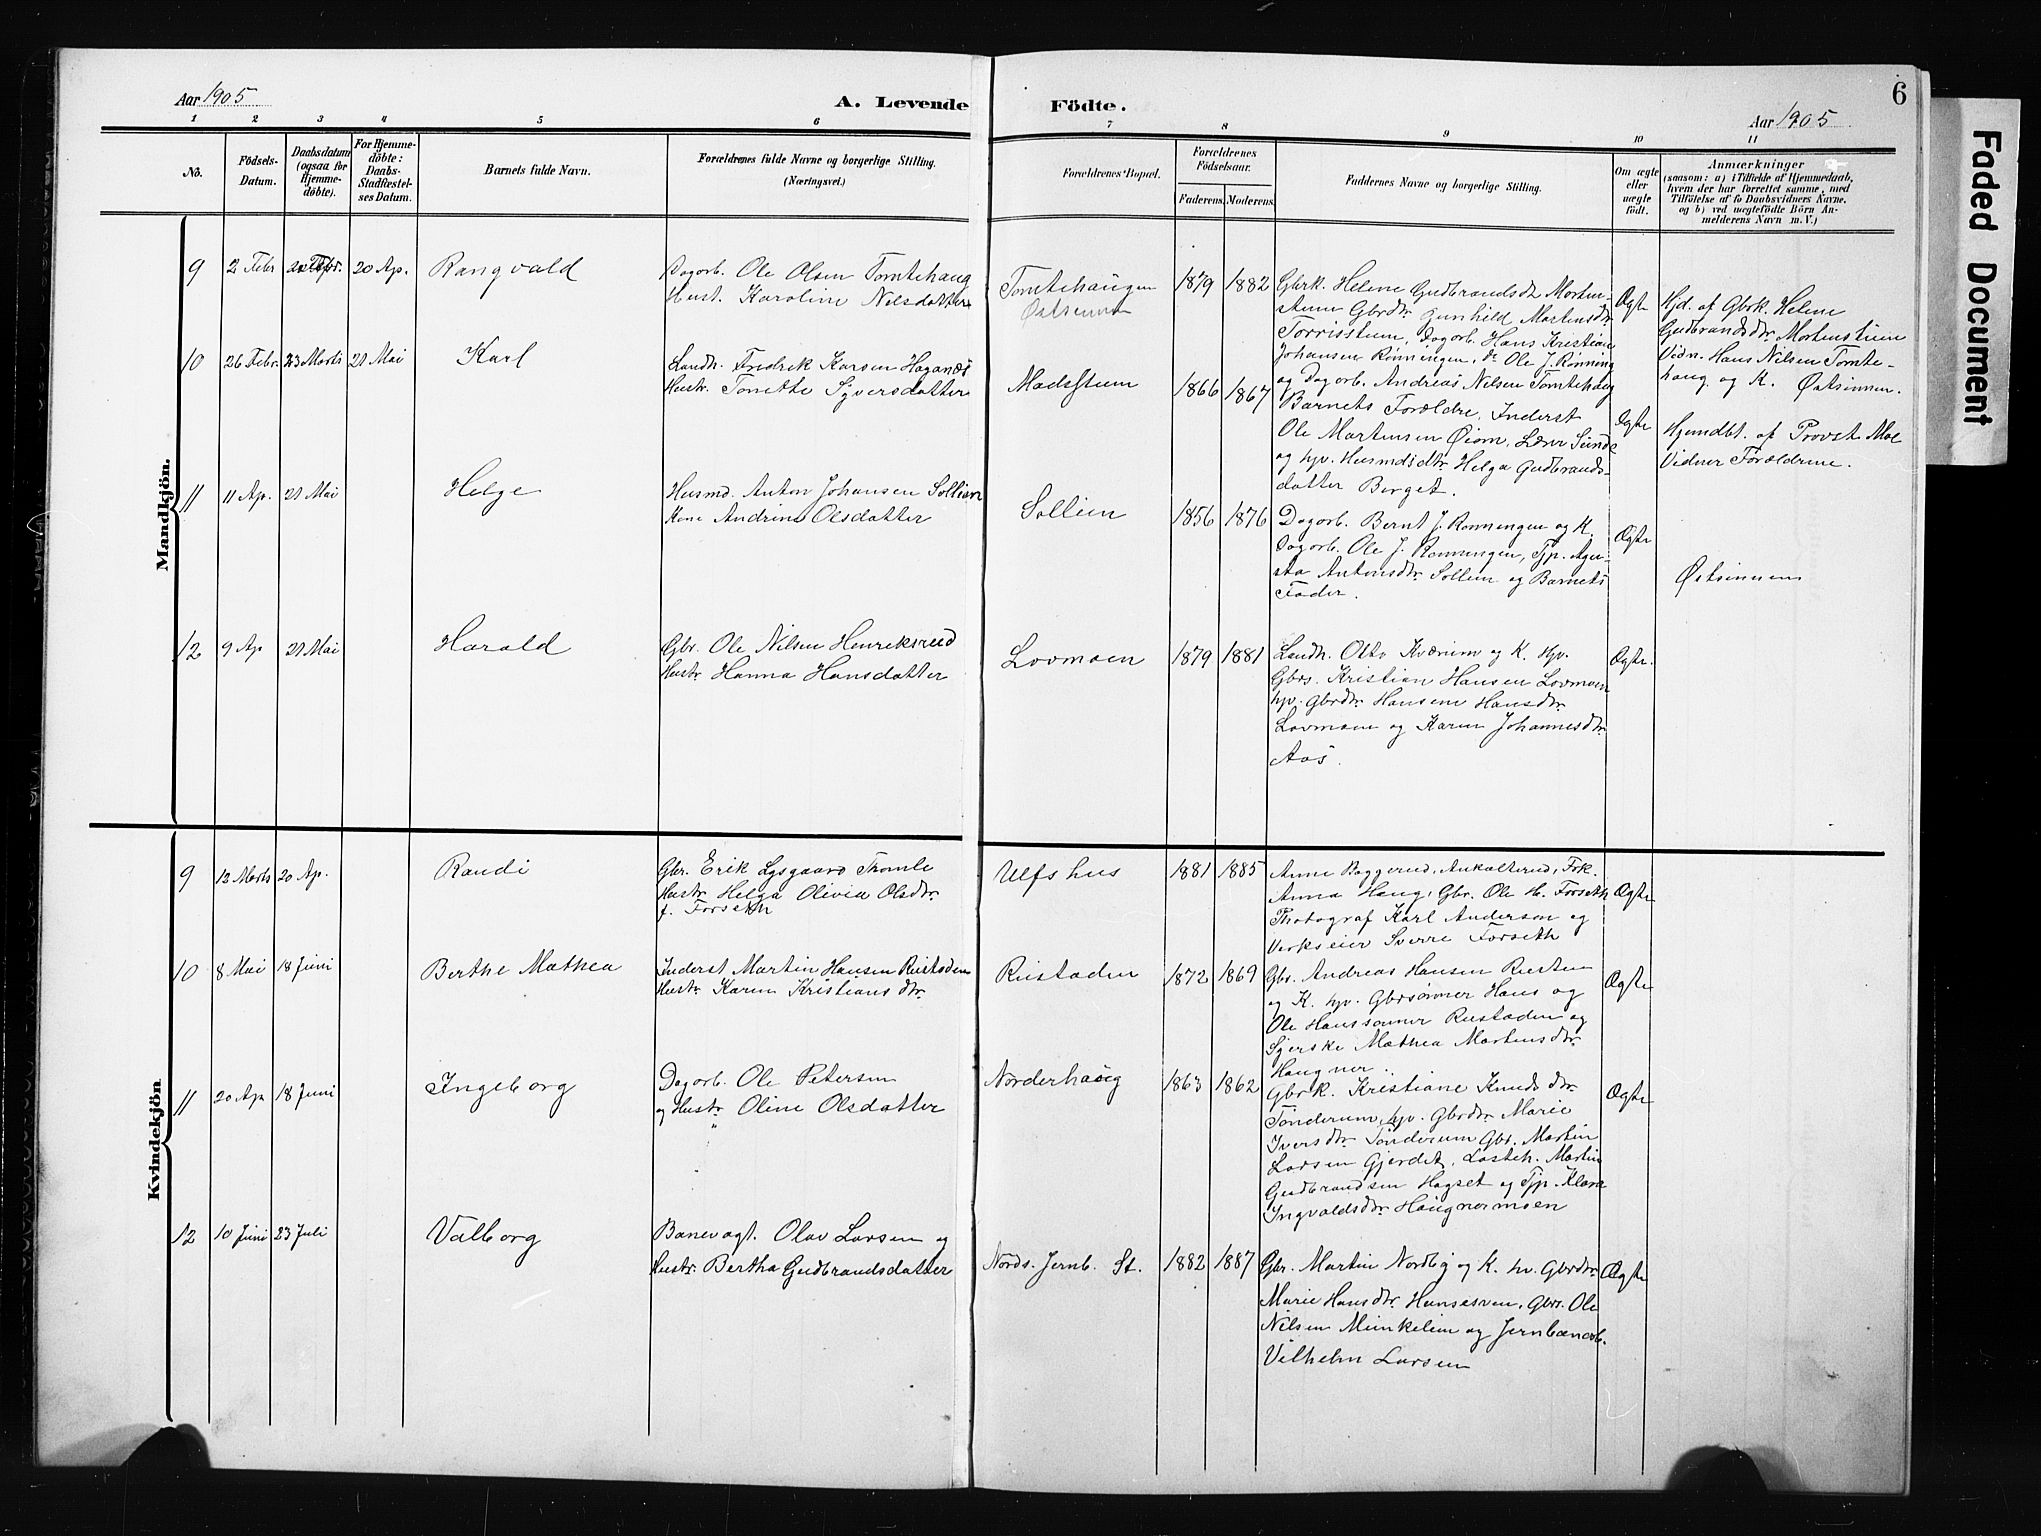 Aar 1905
A. Levende
Födte.
Aar 1905
6
Faded Document
1 2 3 4 5 6 7 8 9 10 11
No.
Födsels-
Datum.
Daabsdatum
(ogsaa for
Hjemme-
döbte).
For Hjemme-
döbte:
Daabs-
Stadfæstel-
ses Datum.
Barnets fulde Navn.
Forældrenes fulde Navne og borgerlige Stilling.
(Næringsvei.)
Forældrenes Bopæl.
Forældrenes
Födselsaar.
Faderens. Moderens.
Faddernes Navne og borgerlige Stilling.
Om ægte
eller
uægte
født.
Anmærkninger
(saasom: a) i Tilfælde af Hjemmedaab,
hvem der har forrettet samme, med
Tilföielse af to Daabsvidners Navne.
og b) ved uægtefödte Börn An-
melderens Navn m. V.)
Mandkjön.
9 2 Febr 20 Ap. Rangvald
Dagarb. Ole Olsen Tomtehaug
Hust. Karoline Nilsdatter
Tomtehaugen
Østsinnen
1879 1882
Gbrk. Helene Gudbrandsdr Morten-
stuen Gbrdtr Gunhild Martinsdtr
Torrisstuen, Dagarb. Hans Kristian
Johansen Rönningen, do Ole J. Rönning
og Dagarb. Andreas Nilsen Tomtehaug
Ægte
Hjd. af Gbrk. Helene
Gudbrandsdtr. Mortenstuen
Vidn. Hans Nilsen Tomte-
haug og K. Østsinnen.
10 26 Febr. 23 Marts 21 Mai Karl
Landh. Fredrik Karsen Haganæs
Hustr. Tonette Syversdatter
Madsstuen
1866 1867
Barnets Forældre, Inderst
Ole Martinsen Øiom, Lærer Sunde
og hv. Husmdsdtr Helga Gudbrands-
datter Berget.
Ægte
Hjemdbt. af Provst Moe
Vidner Forældrene.
11 11 Ap. 21 Mai Helge
Husmd. Anton Johansen Sollien
Kone Andrine Olsdatter
Sollien
1856 1876
Dagarb. Bernt J. Rönningen og K.
Dagarb. Ole J. Rönningen, Tjp. Agu-
sta Antonsdtr Sollien og Barnets
Fader.
Ægte
Østsinnen
12 9 Ap 21 Mai Harald
Gbr. Ole Nilsen Henriksrud
Hustr. Hanna Hansdatter
Lovmoen
1879 1881
Landh. Otto Kværum og K. hv.
Gbrs. Kristian Hansen Lovmoen
hv. Gbrdtr Hansine Hansdtr.
Lovmoen og Karen Johannesdtr.
Aas.
Ægte.
Kvindekjön
9 12 Marts 20 Ap. Randi
Gbr. Erik Lysgaard Tromle
Hustr. Helga Olivia Olsdtr.
f. Forseth
Ulfshus
1881 1885
Anne Baggerud, Ankalterud, Frk.
Anna Haug, Gbr. Ole H. Forseth
Photograf Karl Anderson og
Verkseier Sverre Forseth
Ægte
10 8 Mai 18 Juni Berthe Mathea
Inderst Martin Hansen Rustaden
Hustr. Karen Kristiansdtr.
Rustaden
1872 1869
Gbr. Andreas Hansen Rusten
og K. hv. Gbrsønner Hans og
Ole Hanssønner Rustaden og
Sjerske Mathea Martinsdtr.
Haugner.
Ægte
11 20 Ap 18 Juni Ingeborg
Dagarb. Ole Petersen
og Hustr. Oline Olsdatter
Norderhaug
1863 1862
Gbrk. Kristiane Knudsdtr.
Tönderum, hv. Gbrdtr Marie
Iversdtr Tönderum Gbr. Martin
Larsen Gjerdet, Losteh. Martin
Gudbrandsen Hagset og Tjp. Klara
Ingvaldsdtr Haugnermoen
Ægte
12 10 Juni 23 Juli Valborg
Banevagt. Olav Larsen og
Hustr. Bertha Gudbrandsdatter
Nords. Jernb. St.
1882 1887
Gbr. Martin Nordby og K. hv. Gbrdtr.
Marie Hansdtr Hansesven, Gbrs. Ole
Nilsen Minkelien og Jernbanearb.
Vilhelm Larsen
Ægte